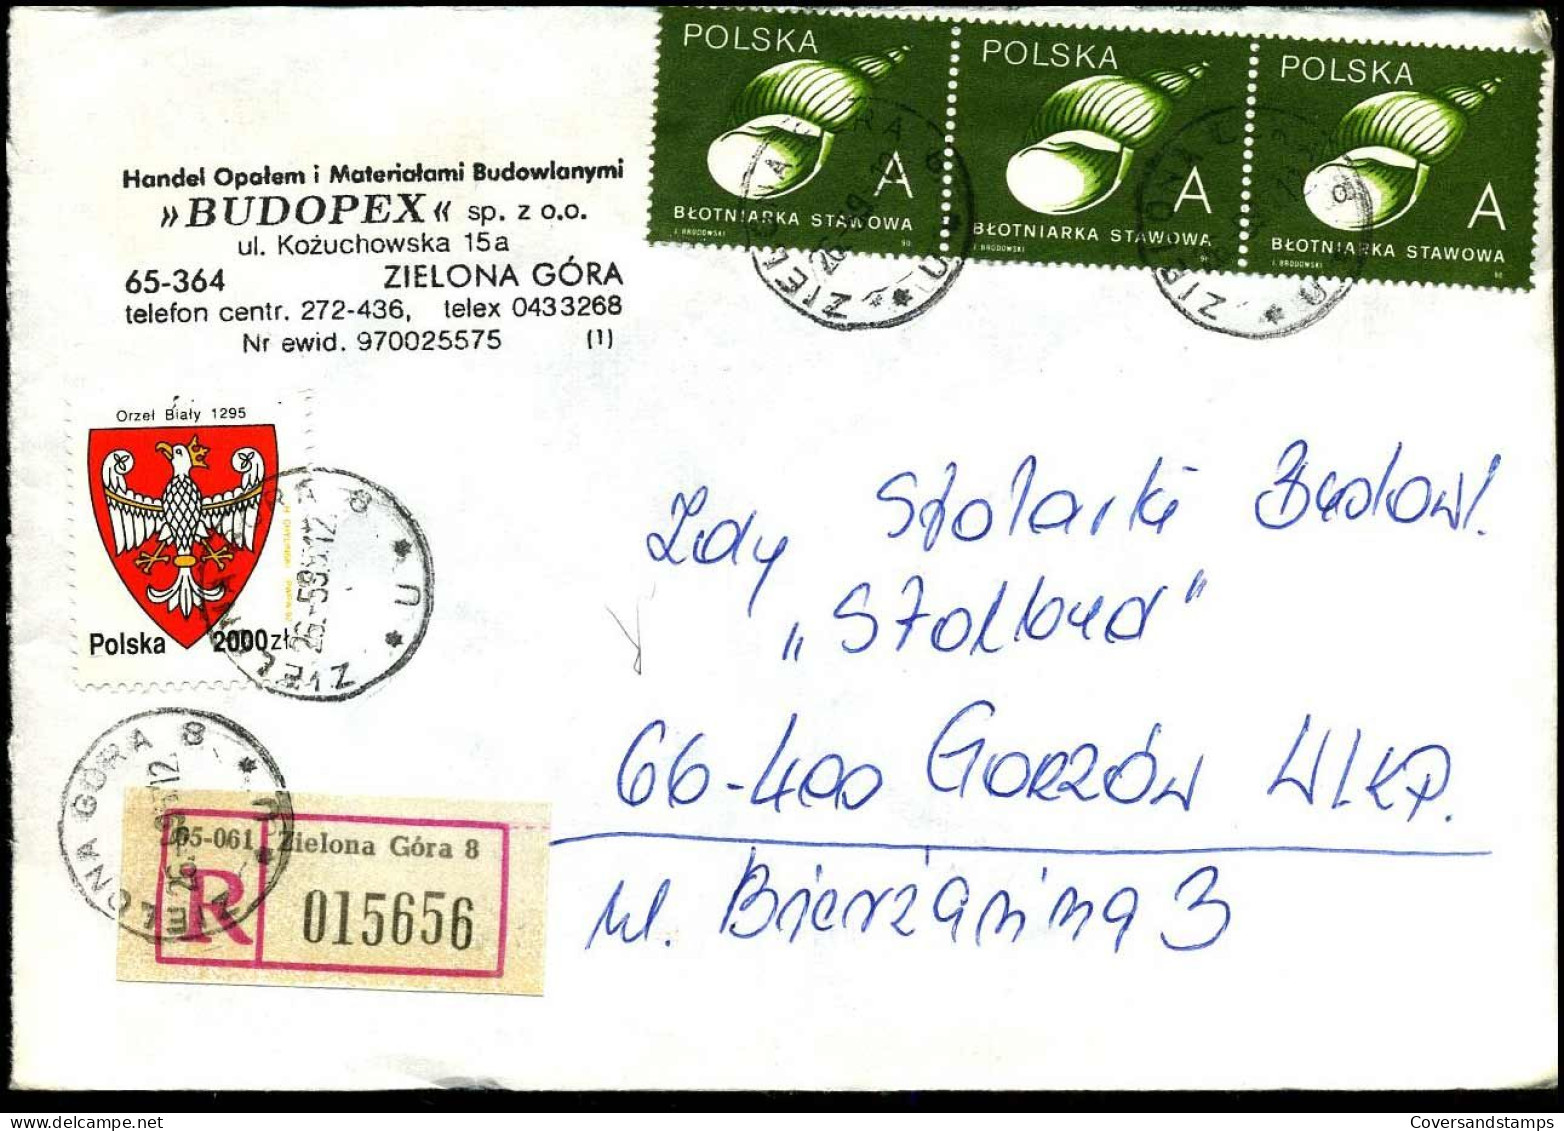 POLSKA
A
BŁOTNIARKA STAWOWA
J. BRODOWSKI 90
POLSKA
A
BŁOTNIARKA STAWOWA
J. BRODOWSKI 90
POLSKA
A
BŁOTNIARKA STAWOWA
J. BRODOWSKI 90
Handel Opałem i Materiałami Budowlanymi
»BUDOPEX« sp. z o.o.
ul. Kożuchowska 15a
65-364 ZIELONA GÓRA
telefon centr. 272-436, telex 0433268
Nr ewid. 970025575 (1)
Orzeł Biały 1295
Polska 2000 zł
ZIELONA GÓRA 8
ZIELONA GÓRA 8
Stolarki Budowl.
„Stolbud"
66-400 GORZÓW WLKP.
ul. Bierzarina 3
05-061 Zielona Góra 8
R 015656
Coversandstamps